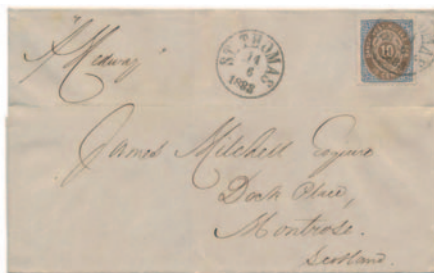 "Medway"
ST. THOMAS
14
6
1883
10
James Mitchell Esquire
Dock Place,
Montrose.
Scotland.